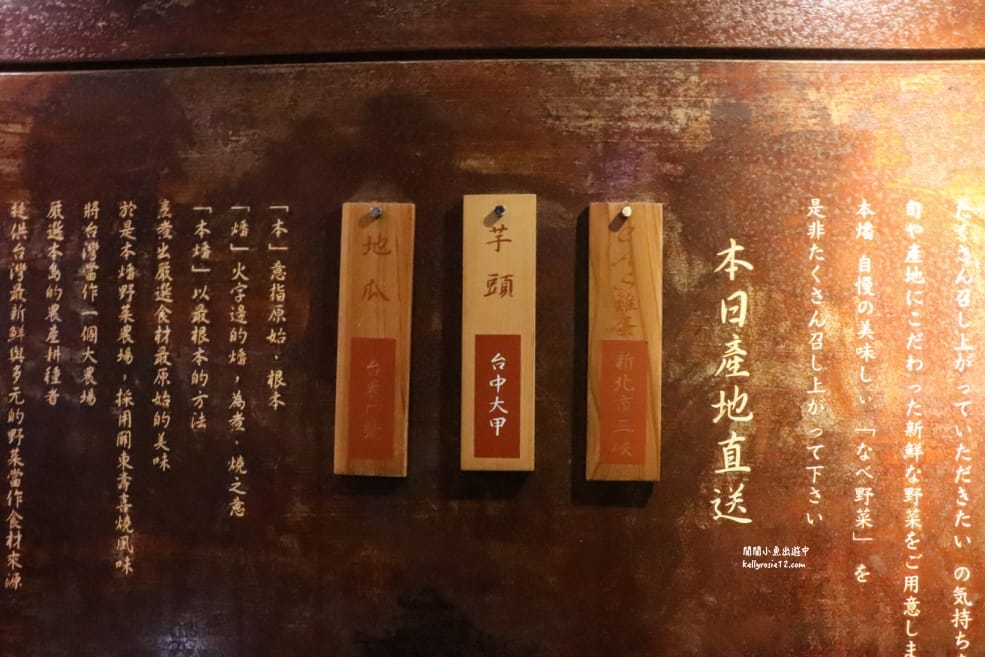 たくさん召し上がっていただきたい の気持ち
旬や産地にこだわった新鮮な野菜をご用意しま
本燔 自慢の美味しい 「なべ野菜」 を
是非たくさん召し上がって下さい
本日產地直送
新北市三峽
芋頭
台中大甲
地瓜
「本」意指原始．根本
「燔」火字邊的燔，為煮．燒之意
「本燔」以最根本的方法
烹煮出嚴選食材最原始的美味
於是本燔野菜農場，採用關東壽喜燒風味
將台灣當作一個大農場
嚴選本島的農産耕種者
提供台灣最新鮮與多元的野菜當作食材來源
閒閒小魚出遊中
kellyrosie12.com